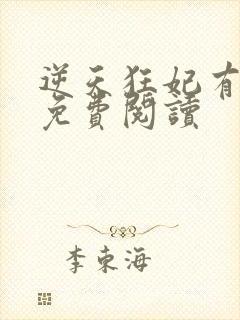 逆天狂妃有
免費閱讀
李東海